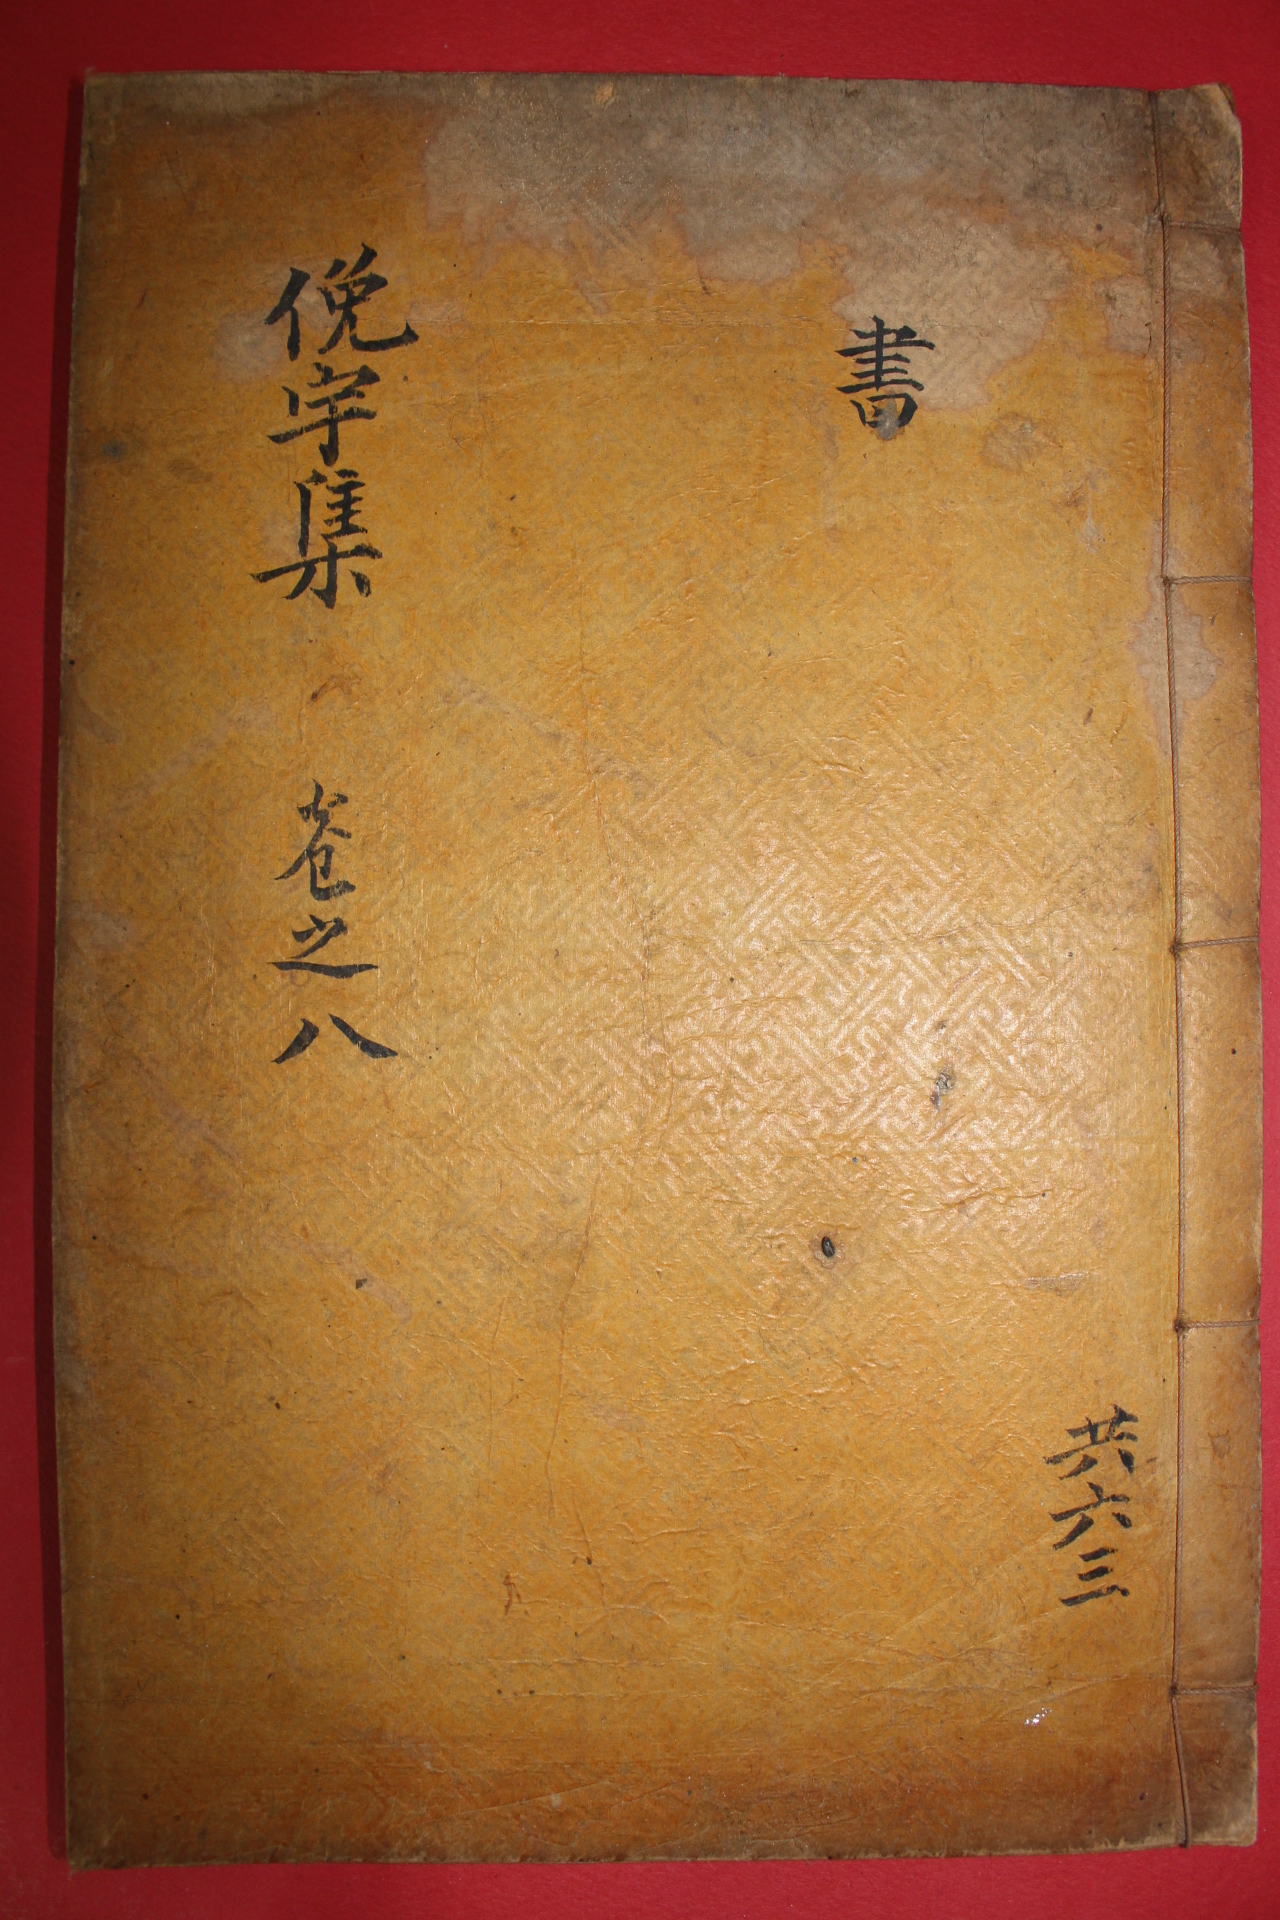 書
共六三
俛宇集 卷之八